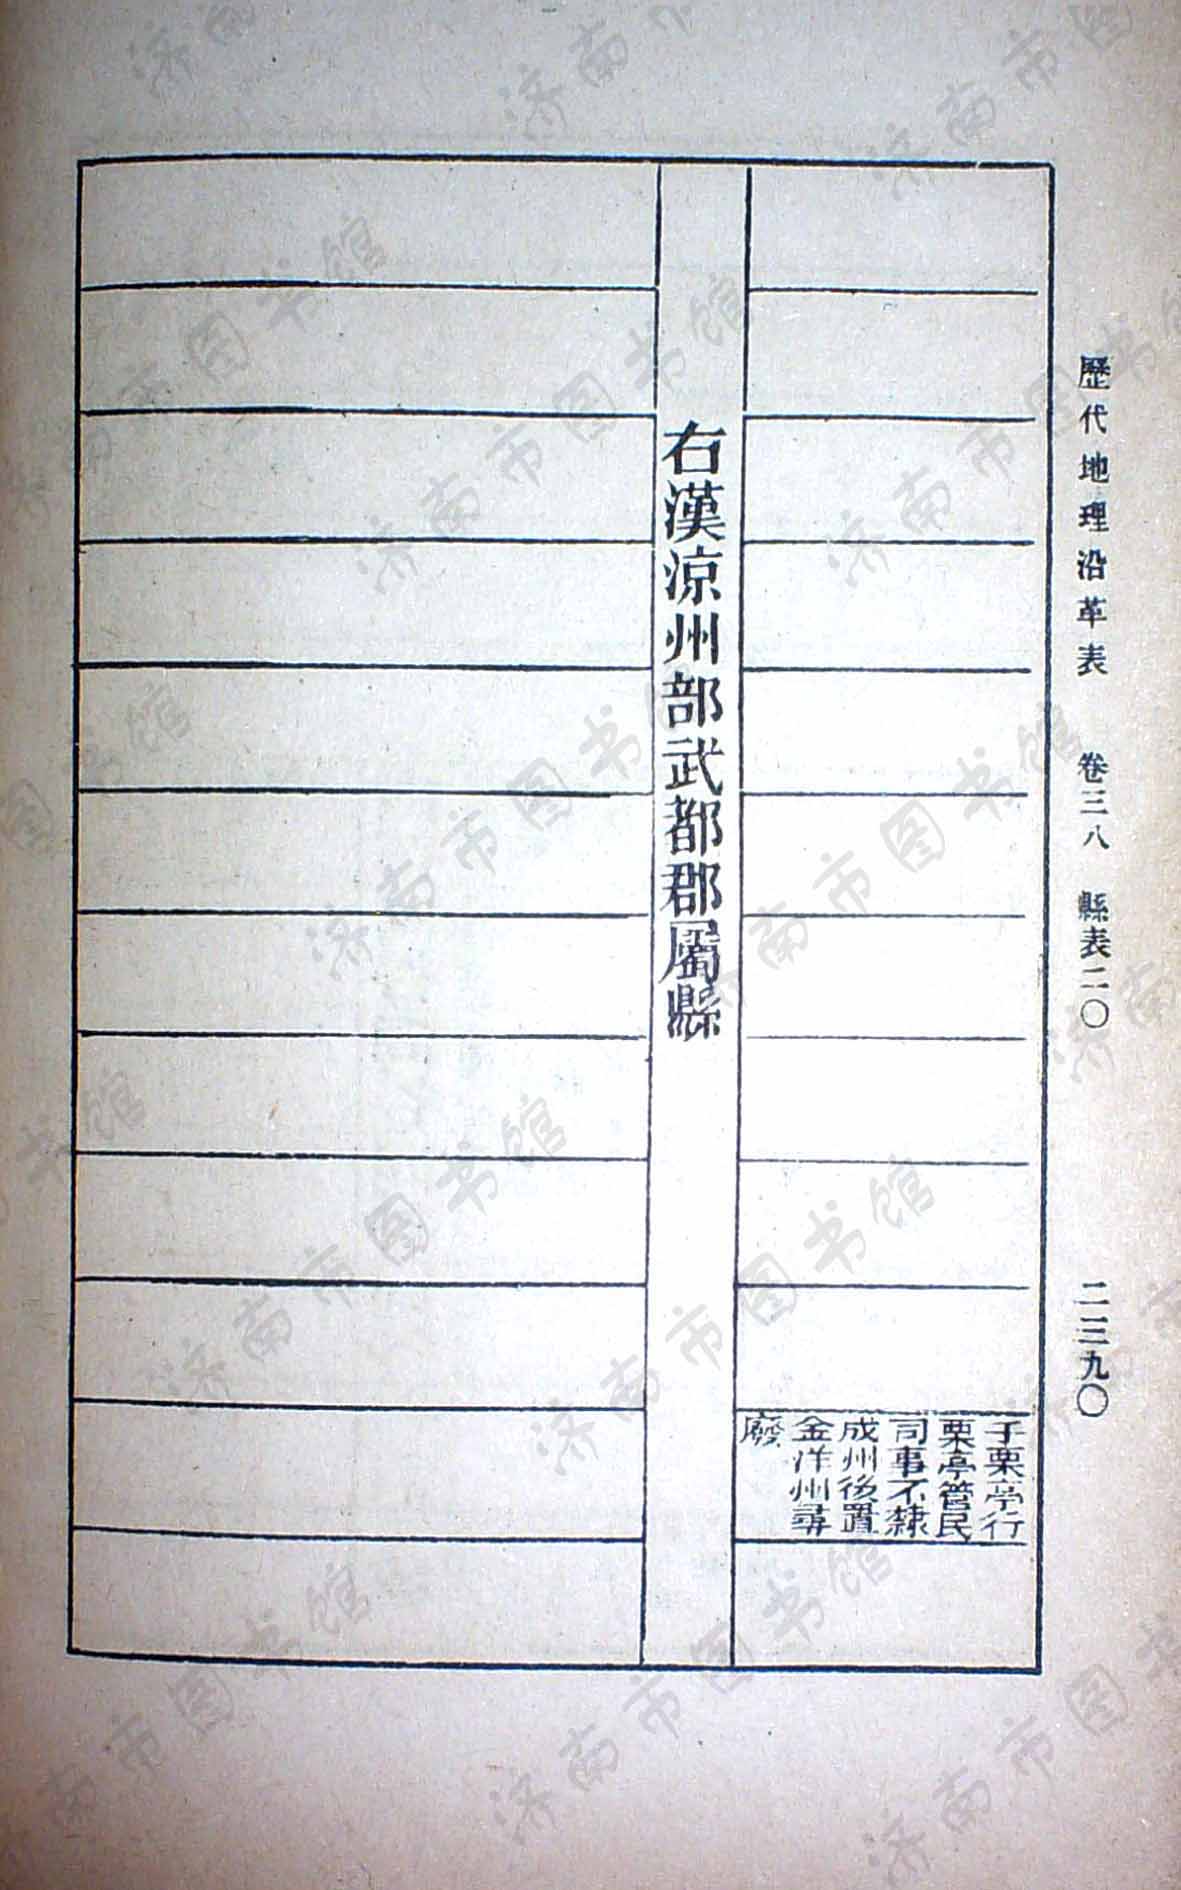 歷代地理沿革表 卷三八 縣表二〇 二三九〇
于栗亭行
栗亭管民
司事不隸
成州後置
金洋州尋
廢
右漢涼州部武都郡屬縣
济南市图书馆